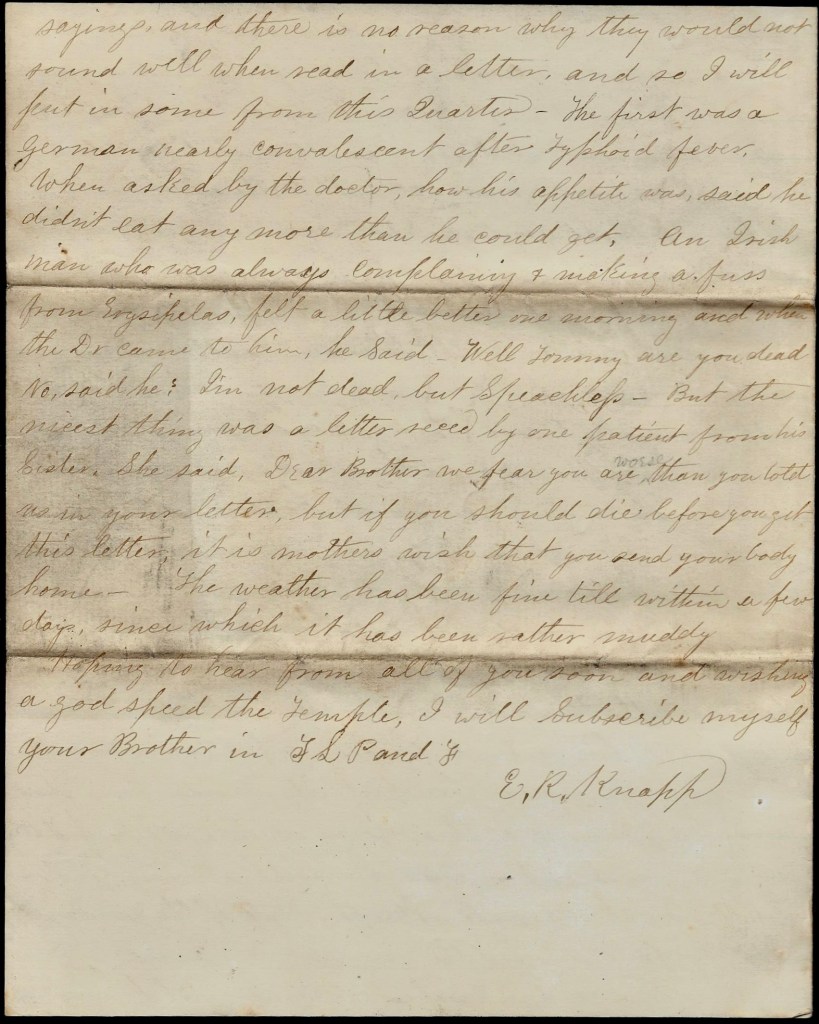 sayings, and there is no reason why they would not
sound well when read in a letter, and so I will
put in some from this Quarter - The first was a
German nearly convalescent after Typhoid fever.
When asked by the doctor, how his appetite was, said he
didn't eat any more than he could get. An Irish
man who was always complaining & making a fuss
from Erysipelas, felt a little better one morning and when
the Dr came to him, he Said - Well Tommy are you dead
No, said he: I'm not dead, but Speachless - But the
nicest thing was a letter reced by one patient from his
Sister. She said, Dear Brother we fear you are worse than you told
us in your letter, but if you should die before you get
this letter, it is mothers wish that you send your body
home - The weather has been fine till within a few
days, since which it has been rather muddy
Hoping to hear from all of you soon and wishing
a god speed the Temple, I will Subscribe myself
your Brother in F L P and F
E. R. Knapp